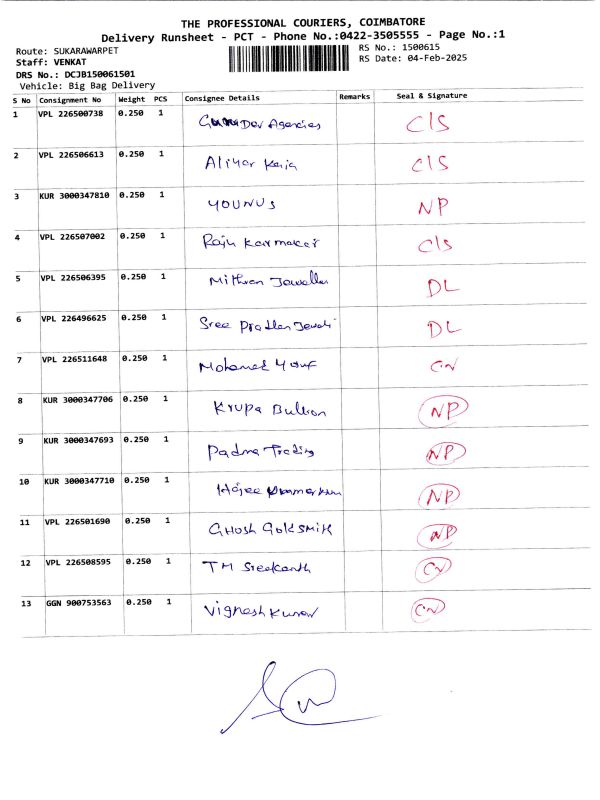 THE PROFESSIONAL COURIERS, COIMBATORE
Delivery Runsheet - PCT - Phone No.:0422-3505555 - Page No.:1
Route: SUKARAWARPET RS No.: 1500615
Staff: VENKAT RS Date: 04-Feb-2025
DRS No.: DCJB150061501
Vehicle: Big Bag Delivery
S No Consignment No Weight PCS Consignee Details Remarks Seal & Signature
1 VPL 226500738 0.250 1 Dev Agencies C/S
2 VPL 226506613 0.250 1 Aliyar C/S
3 KUR 3000347810 0.250 1 YOUNUS NP
4 VPL 226507002 0.250 1 Raju Karmaker C/S
5 VPL 226506395 0.250 1 Mithran Jeweller DL
6 VPL 226496625 0.250 1 Sree DL
7 VPL 226511648 0.250 1 Mohamed CN
8 KUR 3000347706 0.250 1 Krupa Bullion NP
9 KUR 3000347693 0.250 1 Padma Trading NP
10 KUR 3000347710 0.250 1 NP
11 VPL 226501690 0.250 1 GHosh GoldSMith NP
12 VPL 226508595 0.250 1 TM Sreekanth CN
13 GGN 900753563 0.250 1 Vignesh Kumar CN